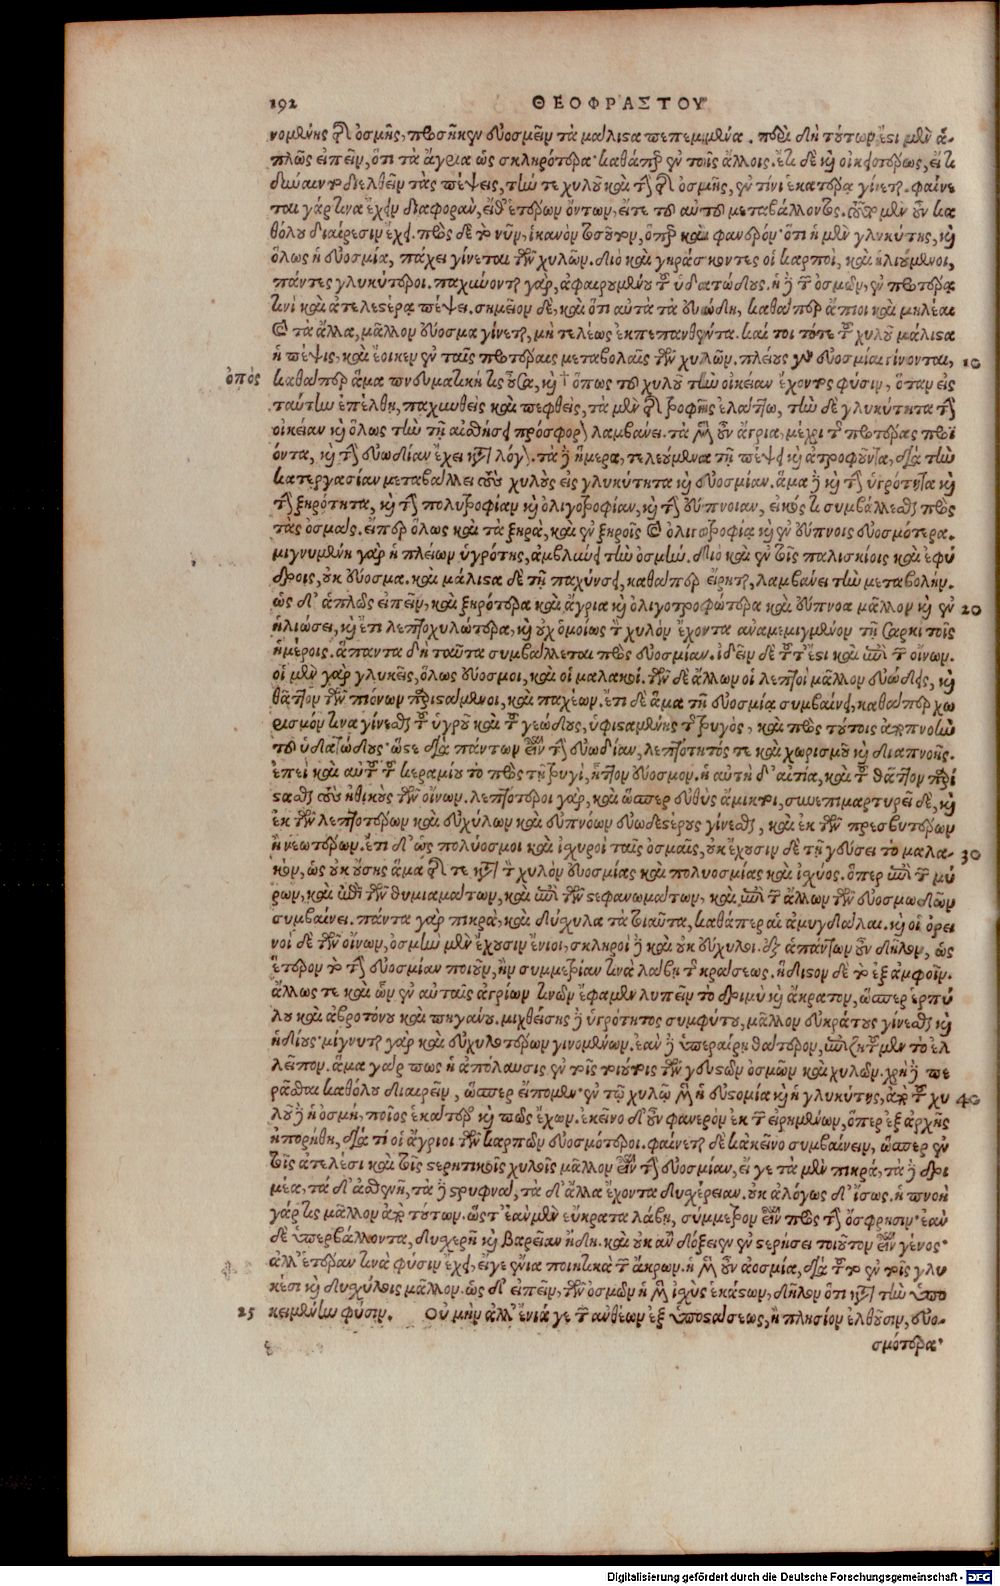 192 ΘΕΟΦΡΑΣΤΟΥ
νομένης τῆς ὀσμῆς, προσῆκεν εὐοσμεῖν τὰ μάλιστα πεπεμμένα. περὶ δὴ τούτων ἔστι μὲν ἁ-
πλῶς εἰπεῖν, ὅτι τὰ ἄγρια ὡς σκληρότερα· καθάπερ ἐν τοῖς ἄλλοις. ἔτι δὲ καὶ οἰκειοτέρως, εἴ τι
δύναιντο διελθεῖν τὰς πέψεις, τήν τε χυλοῦ καὶ τὴν τῆς ὀσμῆς, ἐν τίνι ἑκατέρα γίνεται. φαίνε
ται γάρ τινα ἔχειν διαφορὰν, εἴθ' ἑτέρων ὄντων, εἴτε τοῦ αὐτοῦ μεταβάλλοντος. αὕτη μὲν οὖν κα
θόλου διαίρεσιν ἔχει. πρὸς δὲ τὸ νῦν, ἱκανὸν τοσοῦτον, ὅπερ καὶ φανερόν· ὅτι ἡ μὲν γλυκύτης, καὶ
ὅλως ἡ εὐοσμία, πάχει γίνεται τῶν χυλῶν. διὸ καὶ γηράσκοντες οἱ καρποὶ, καὶ ἡλιούμενοι,
πάντες γλυκύτεροι. παχύνονται γὰρ, ἀφαιρουμένου τοῦ ὑδατώδους. ἡ δὲ τῶν ὀσμῶν, ἐν προτέρα
τινὶ καὶ ἀτελεστέρα πέψει. σημεῖον δὲ, καὶ ὅτι αὐτὰ τὰ εὐώδη, καθάπερ ἄπιοι καὶ μηλέαι
καὶ τὰ ἄλλα, μᾶλλον εὔοσμα γίνεται, μὴ τελέως ἐκπεπανθέντα. καί τοι τότε τοῦ χυλοῦ μάλιστα
ἡ πέψις, καὶ ἔοικεν ἐν ταῖς προτέραις μεταβολαῖς τῶν χυλῶν. πλείους γὰρ εὐοσμίαι γίνονται, 10
ὀπός καθάπερ ἅμα πνευματική τις οὖσα, καὶ † ὅπως τοῦ χυλοῦ τὴν οἰκείαν ἔχοντος φύσιν, ὅταν εἰς
ταύτην ἐπέλθῃ, παχυνθεὶς καὶ πεφθεὶς, τὰ μὲν τῆς τροφῆς ἐλάττω, τὴν δὲ γλυκύτητα τὴν
οἰκείαν καὶ ὅλως τὴν τῇ αἰσθήσει πρόσφορον λαμβάνει. τὰ μὲν οὖν ἄγρια, μέχρι τῆς προτέρας πρωῒ
ὄντα, καὶ τὴν εὐωδίαν ἔχει κατὰ λόγον. τὰ δὲ ἥμερα, τελεούμενα τῇ πέψει καὶ ἀτροφοῦντα, διὰ τὴν
κατεργασίαν μεταβάλλει τοὺς χυλοὺς εἰς γλυκύτητα καὶ εὐοσμίαν. ἅμα δὲ καὶ τὴν ὑγρότητα καὶ
τὴν ξηρότητα, καὶ τὴν πολυτροφίαν καὶ ὀλιγοτροφίαν, καὶ τὴν εὔπνοιαν, εἰκός τι συμβάλλεσθαι πρὸς
τὰς ὀσμάς. εἴπερ ὅλως καὶ τὰ ξηρὰ, καὶ ἐν ξηροῖς καὶ ὀλιγοτροφία καὶ ἐν εὔπνοις εὐοσμότερα.
μιγνυμένη γὰρ ἡ πλείων ὑγρότης, ἀμβλύνει τὴν ὀσμήν. διὸ καὶ ἐν τοῖς παλισκίοις καὶ ἐφύ
δροις, οὐκ εὔοσμα. καὶ μάλιστα δὲ τῇ παχύνσει, καθάπερ εἴρηται, λαμβάνει τὴν μεταβολήν.
ὡς δ' ἁπλῶς εἰπεῖν, καὶ ξηρότερα καὶ ἄγρια καὶ ὀλιγοτροφώτερα καὶ εὔπνοα μᾶλλον καὶ ἐν 20
ἡλιώσει, καὶ ἔτι λεπτοχυλώτερα, καὶ οὐχ ὁμοίως τὸν χυλὸν ἔχοντα ἀναμεμιγμένον τῇ σαρκὶ τοῖς
ἡμέροις. ἅπαντα δὴ ταῦτα συμβάλλεται πρὸς εὐοσμίαν. ἰδεῖν δὲ τοῦτ' ἔστι καὶ ἐπὶ τῶν οἴνων.
οἱ μὲν γὰρ γλυκεῖς, ὅλως εὔοσμοι, καὶ οἱ μαλακοί. τῶν δὲ ἄλλων οἱ λεπτοὶ μᾶλλον εὐώδεις, καὶ
θᾶττον τῶν πιόνων ἀφιστάμενοι, καὶ παχέων. ἔτι δὲ ἅμα τῇ εὐοσμία συμβαίνει, καθάπερ χω
ρισμόν τινα γίνεσθαι τοῦ ὑγροῦ καὶ τοῦ γεώδους, ὑφισταμένης τῆς τρυγὸς, καὶ πρὸς τούτοις ἀποπνοὴν
τοῦ ὑδατώδους· ὥστε διὰ πάντων εἶναι τὴν εὐωδίαν, λεπτότητός τε καὶ χωρισμοῦ καὶ διαπνοῆς.
ἐπεὶ καὶ αὐτοῦ τοῦ κεραμίου τὸ πρὸς τῇ τρυγὶ, ἧττον εὔοσμον. ἡ αὐτὴ δ' αἰτία, καὶ τοῦ θᾶττον ἀφί
στασθαι τοὺς ἠθικοὺς τῶν οἴνων. λεπτότεροι γὰρ, καὶ ὥσπερ εὐθὺς ἄμικτοι, συνεπιμαρτυρεῖ δὲ, καὶ
ἐκ τῶν λεπτοτέρων καὶ εὐχύλων καὶ εὐπνόων εὐωδεστέρους γίνεσθαι, καὶ ἐκ τῶν πρεσβυτέρων
ἢ νεωτέρων. ἔτι δ' ὡς πολύοσμοι καὶ ἰσχυροὶ ταῖς ὀσμαῖς, οὐκ ἔχουσιν δὲ τῇ γεύσει τὸ μαλα- 30
κὸν, ὡς οὐκ οὔσης ἅμα τῆς τε κατὰ τὸν χυλὸν εὐοσμίας καὶ πολυοσμίας καὶ ἰσχύος. ὅπερ ἐπὶ τῶν μύ
ρων, καὶ ἐπὶ τῶν θυμιαμάτων, καὶ ἐπὶ τῶν στεφανωμάτων, καὶ ἐπὶ τῶν ἄλλων τῶν εὐοσμωδῶν
συμβαίνει. πάντα γὰρ πικρὰ, καὶ δύσχυλα τὰ τοιαῦτα, καθάπερ αἱ ἀμυγδάλαι. καὶ οἱ ὀρει
νοὶ δὲ τῶν οἴνων, ὀσμὴν μὲν ἔχουσιν ἔνιοι, σκληροὶ δὲ καὶ οὐκ εὔχυλοι. ἐξ ἁπάντων οὖν δῆλον, ὡς
ἕτερον τὸ τὴν εὐοσμίαν ποιοῦν, ἢν συμμετρίαν τινὰ λάβῃ τῆς κράσεως. ἥδιστον δὲ τὸ ἐξ ἀμφοῖν.
ἄλλως τε καὶ ὧν ἐν αὐταῖς ἀγρίων τινῶν ἔφαμεν λυπεῖν τὸ δριμὺ καὶ ἄκρατον, ὥσπερ ἑρπύ
λου καὶ ἀβροτόνου καὶ πηγάνου. μιχθείσης δὲ ὑγρότητος συμφύτου, μᾶλλον εὐκράτους γίνεσθαι καὶ
ἡδίους· μίγνυται γὰρ καὶ εὐχυλοτέρων γινομένων. ἐὰν δὲ ὑπεραίρῃ θάτερον, ἐπιζητεῖ μὲν τὸ ἐλ
λεῖπον. ἅμα γάρ πως ἡ ἀπόλαυσις ἐν τοῖς τοιούτοις τῶν γευστῶν ὀσμῶν καὶ χυλῶν. χρὴ δὲ πε
ρᾶσθαι καθόλου διαιρεῖν, ὥσπερ εἴπομεν· ἐν τῷ χυλῷ μὲν ἡ εὐοσμία καὶ ἡ γλυκύτης, ἀπὸ τοῦ χυ 40
λοῦ δὲ ἡ ὀσμὴ, ποῖος ἑκάτερος καὶ πῶς ἔχων. ἐκεῖνο δ' οὖν φανερὸν ἐκ τῶν εἰρημένων, ὅπερ ἐξ ἀρχῆς
ἠπορήθη, διὰ τί οἱ ἄγριοι τῶν καρπῶν εὐοσμότεροι. φαίνεται δὲ κἀκεῖνο συμβαίνειν, ὥσπερ ἐν
τοῖς ἀτελέσι καὶ τοῖς στερητικοῖς χυλοῖς μᾶλλον εἶναι τὴν εὐοσμίαν, εἴ γε τὰ μὲν πικρὰ, τὰ δὲ δρι
μέα, τὰ δ' ἀσθενῆ, τὰ δὲ στρυφνὰ, τὰ δ' ἄλλα ἔχοντα δυσχέρειαν. οὐκ ἀλόγως δ' ἴσως. ἡ πνοὴ
γάρ τις μᾶλλον ἀπὸ τούτων. ὥστ' ἐὰν μὲν εὔκρατα λάβῃ, σύμμετρον εἶναι πρὸς τὴν ὄσφρησιν· ἐὰν
δὲ ὑπερβάλλοντα, δυσχερῆ καὶ βαρεῖαν ἤδη. καὶ οὐκ ἂν δόξειεν ἐν στερήσει τοιοῦτον εἶναι γένος·
ἀλλ' ἑτέραν τινὰ φύσιν ἔχει, εἴγε ἔνια ποιητικὰ τῶν ἄκρων. ἡ μὲν οὖν ἀοσμία, διὰ τοῦτο ἐν τοῖς γλυ
κέσι καὶ δυσχύλοις μᾶλλον. ὡς δ' εἰπεῖν, τῶν ὀσμῶν ἡ μὲν ἰσχὺς ἑκάστων, δῆλον ὅτι κατὰ τὴν ὑπο
25 κειμένην φύσιν. Οὐ μὴν ἀλλ' ἔνιά γε τῶν ἀνθέων ἐξ ὑποστάσεως, ἢ πλησίον ἐλθοῦσιν, εὐο-
σμότερα·
Digitalisierung gefördert durch die Deutsche Forschungsgemeinschaft - DFG